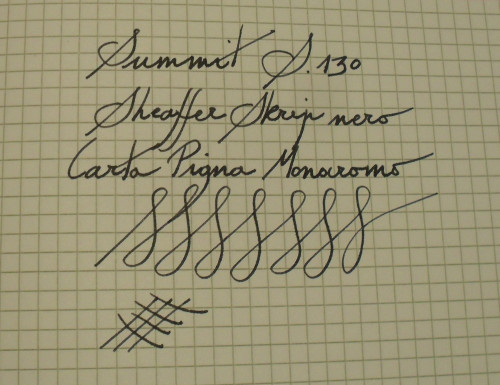 Summit S.130
Sheaffer Skrip nero
Carta Pigna Monocromo